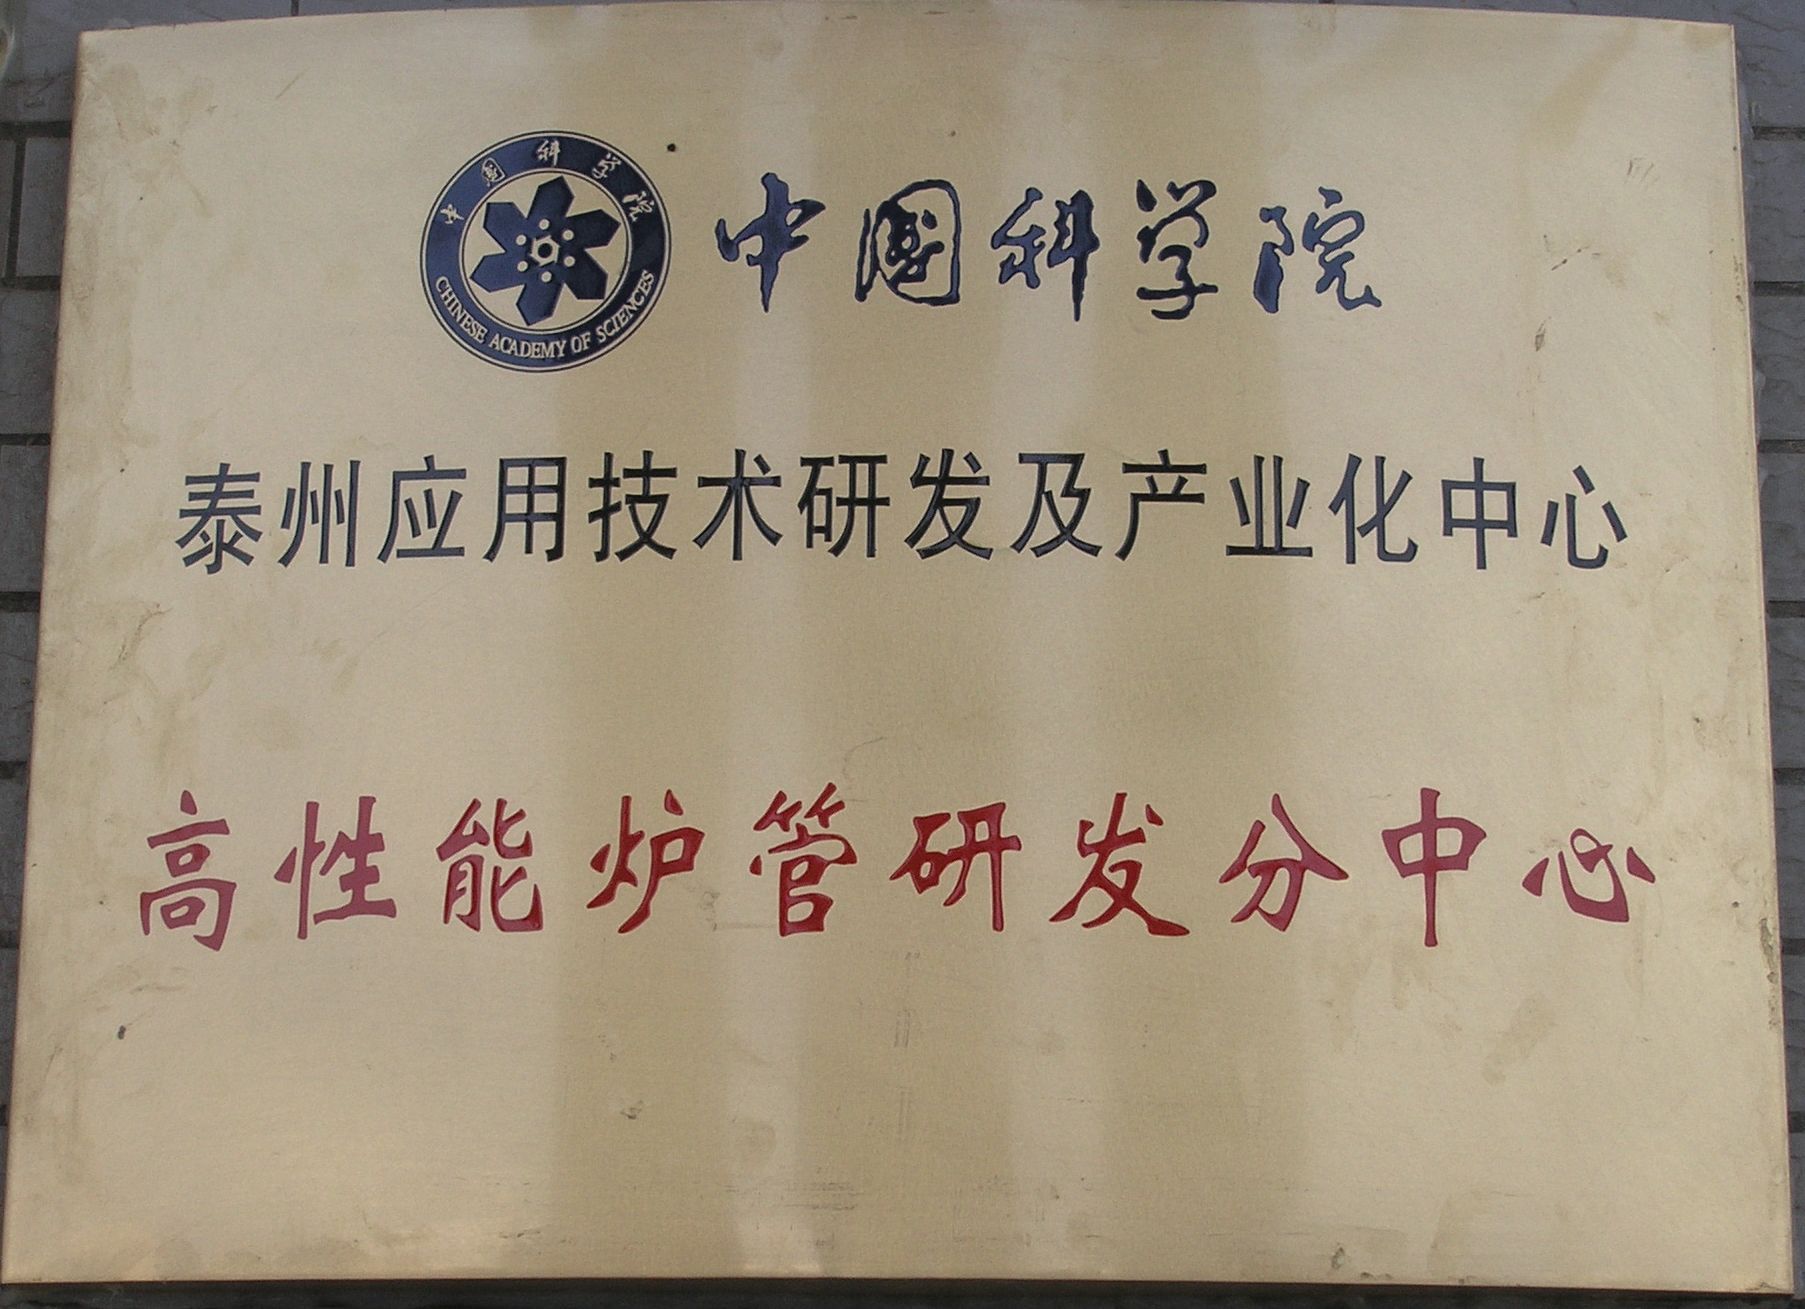 中国科学院
CHINESE ACADEMY OF SCIENCES
中国科学院
泰州应用技术研发及产业化中心
高性能炉管研发分中心